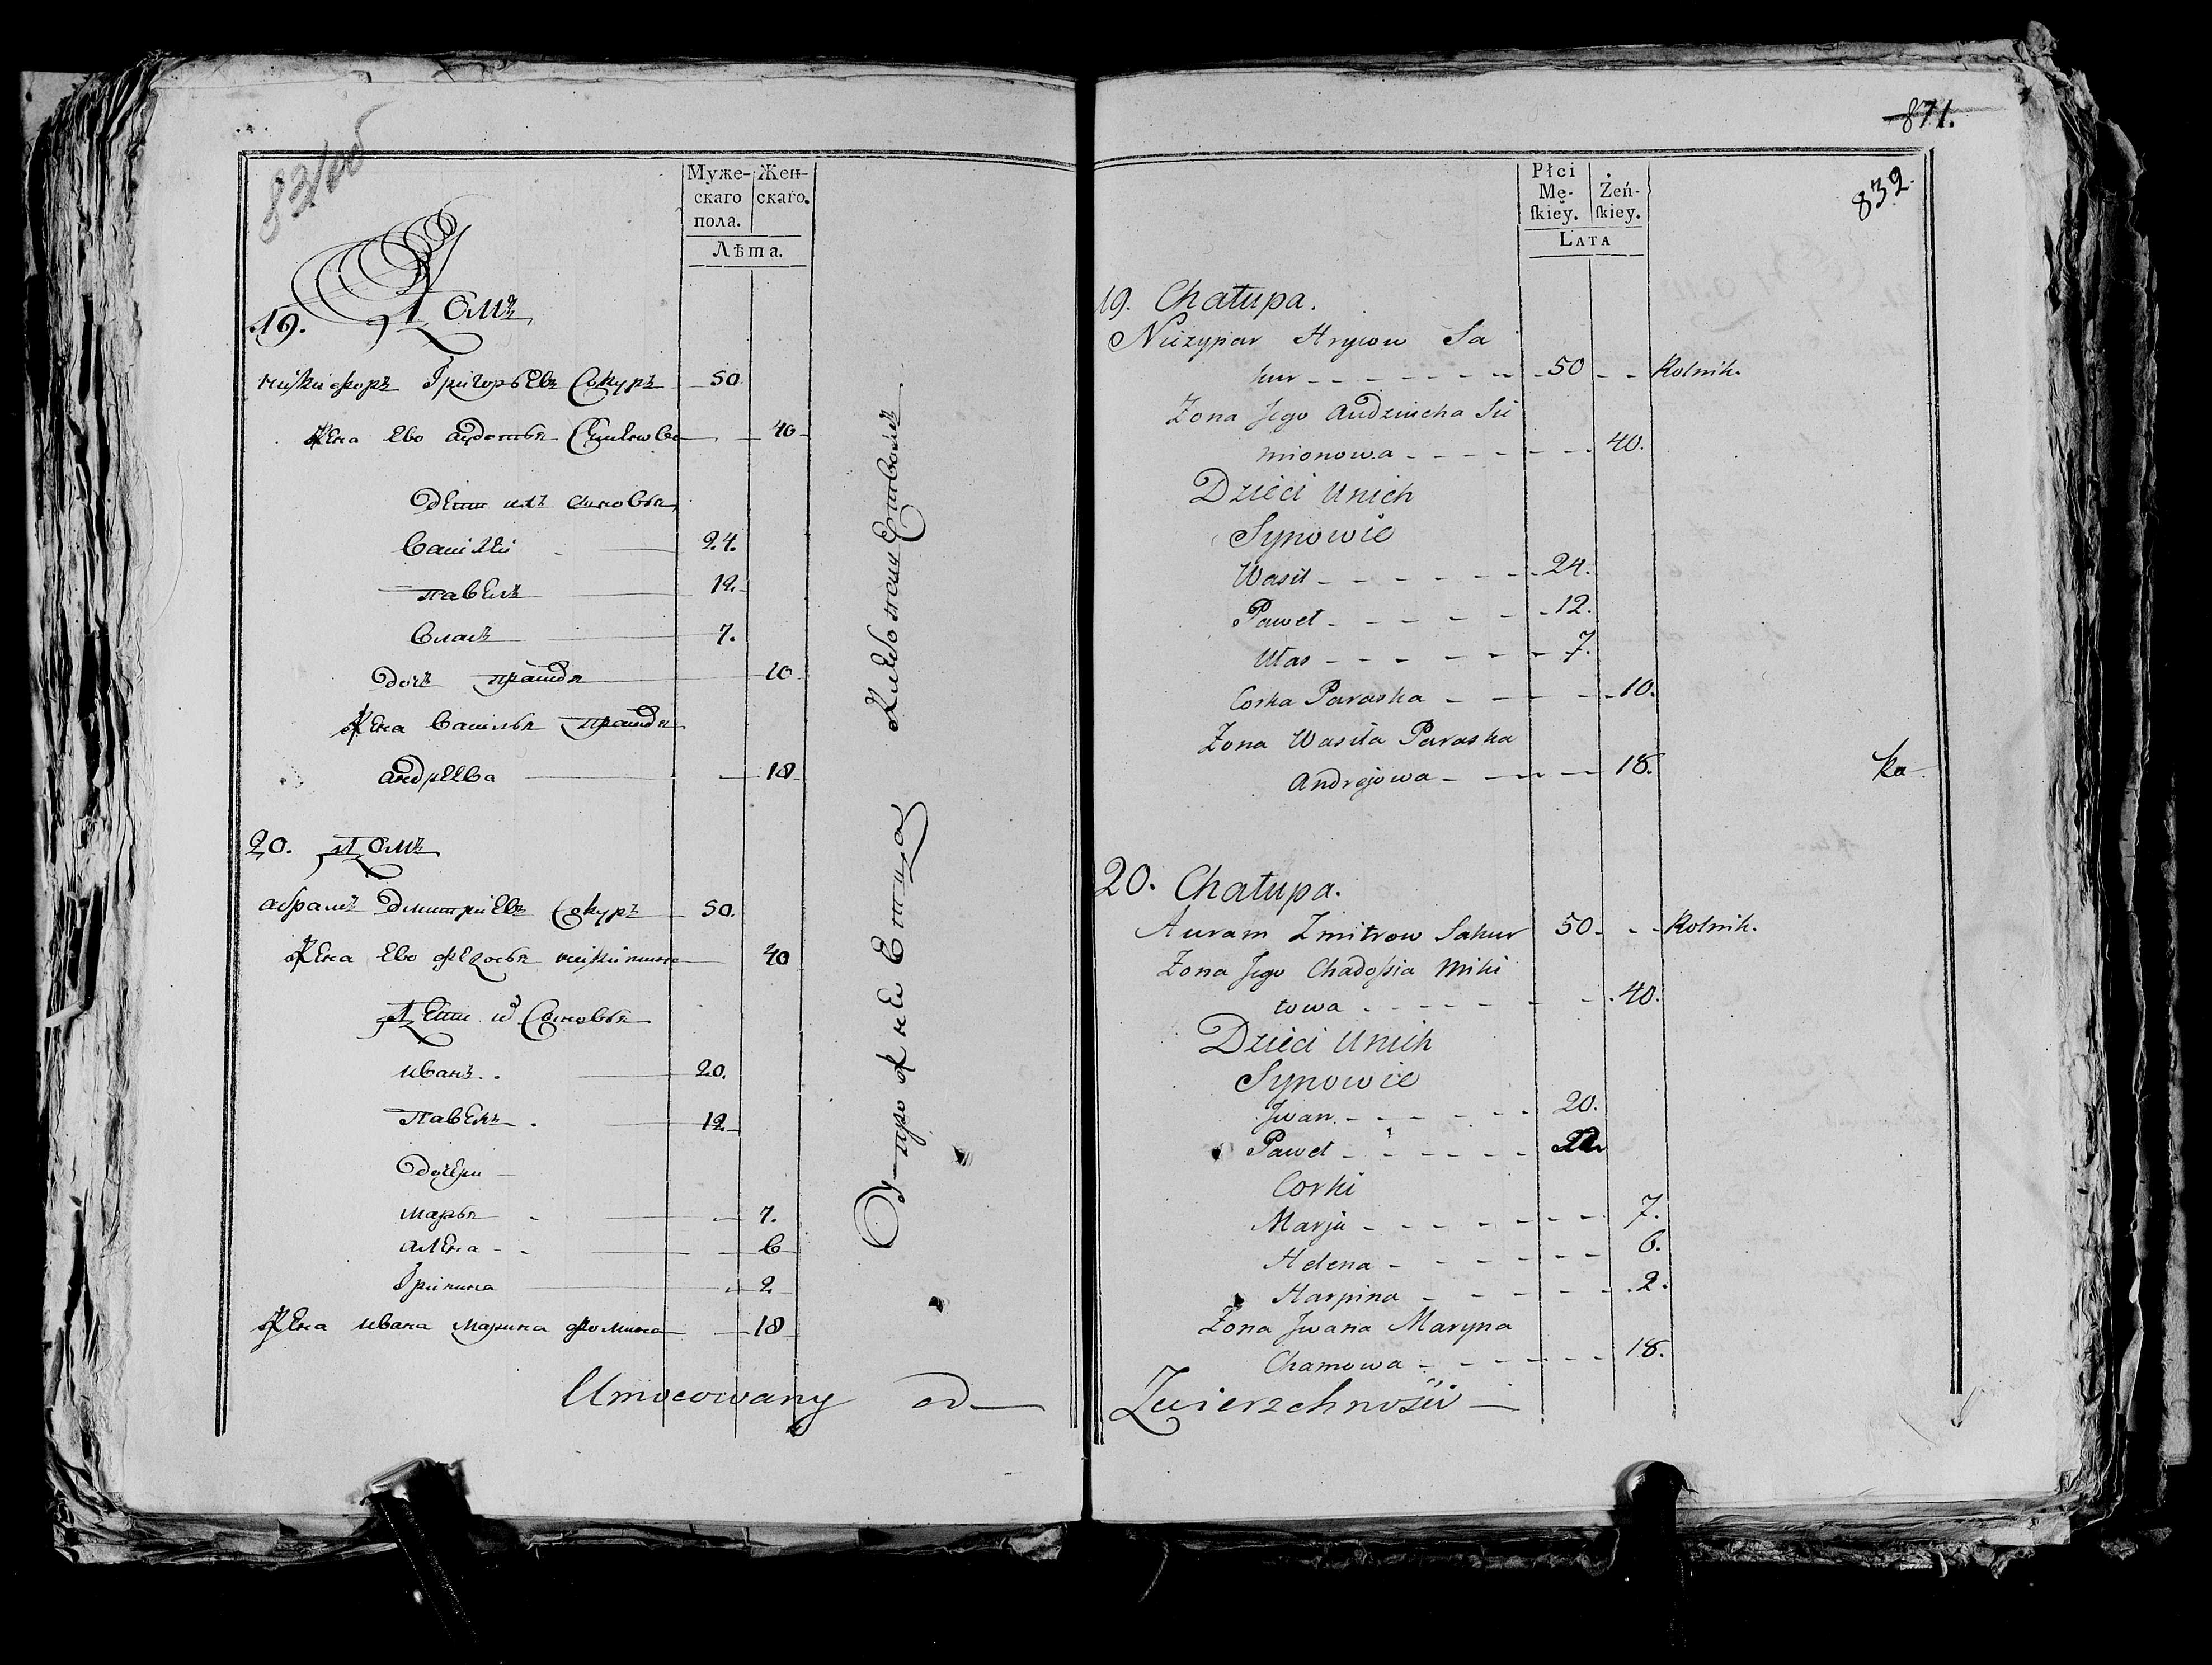 831 об
Муже-
скаго
пола.
Жен-
скаго.
Лѣта.
19. Домъ
никифоръ Григорьевъ Сокуръ 50.
жена ево авдотья Семенова 40
дети ихъ сыновья
василей 24.
павелъ 12.
власъ 7.
дочь прасидя 10
жена василья прасидя
андреева 18
20. Домъ
абрамъ дмитриевъ Сокуръ 50.
жена ево федосья никитина 40
Дети их Сыновья
иванъ. 20.
павелъ. 12.
дочери
марья 7.
алена 6
Грипина 2
жена ивана марина фомина 18
Umocowany od
871.
832.
Płci
Mę-
ſkiey.
Żeń-
ſkiey.
Lata
19. Chałupa.
Niczypar Hryow Sa
kur 50 Rolnik.
Zona Jego Audziucha Si
mionowa 40.
Dzieci Unich
Synowie
Wasil 24.
Paweł 12.
Ułas 7.
Corka Paraska 10.
Zona Wasila Paraska
Andrejowa 18.
ka
20. Chałupa.
Auram Zmitrow Sakur 50 Rolnik.
Zona Jego Chadoſsia Miki
towa 40.
Dzieci Unich
Synowie
Jwan 20.
Paweł
Corki
Marja 7.
Helena 6.
Harpina 2.
Zona Jwana Maryna
Chamowa 18.
Zwierzchności